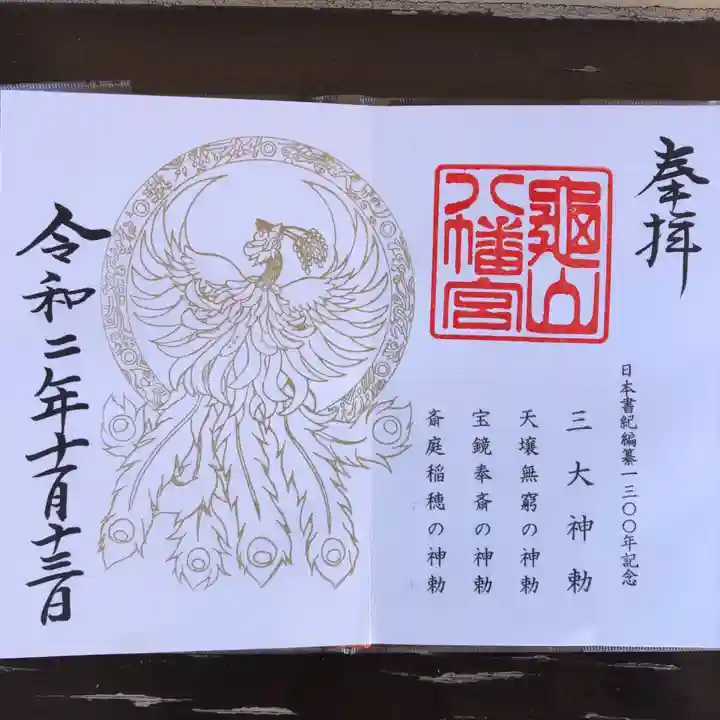 奉拝
龜山
八幡宮
日本書紀編纂一三〇〇年記念
三大神勅
天壌無窮の神勅
宝鏡奉斎の神勅
斎庭稲穂の神勅
令和二年十一月十三日